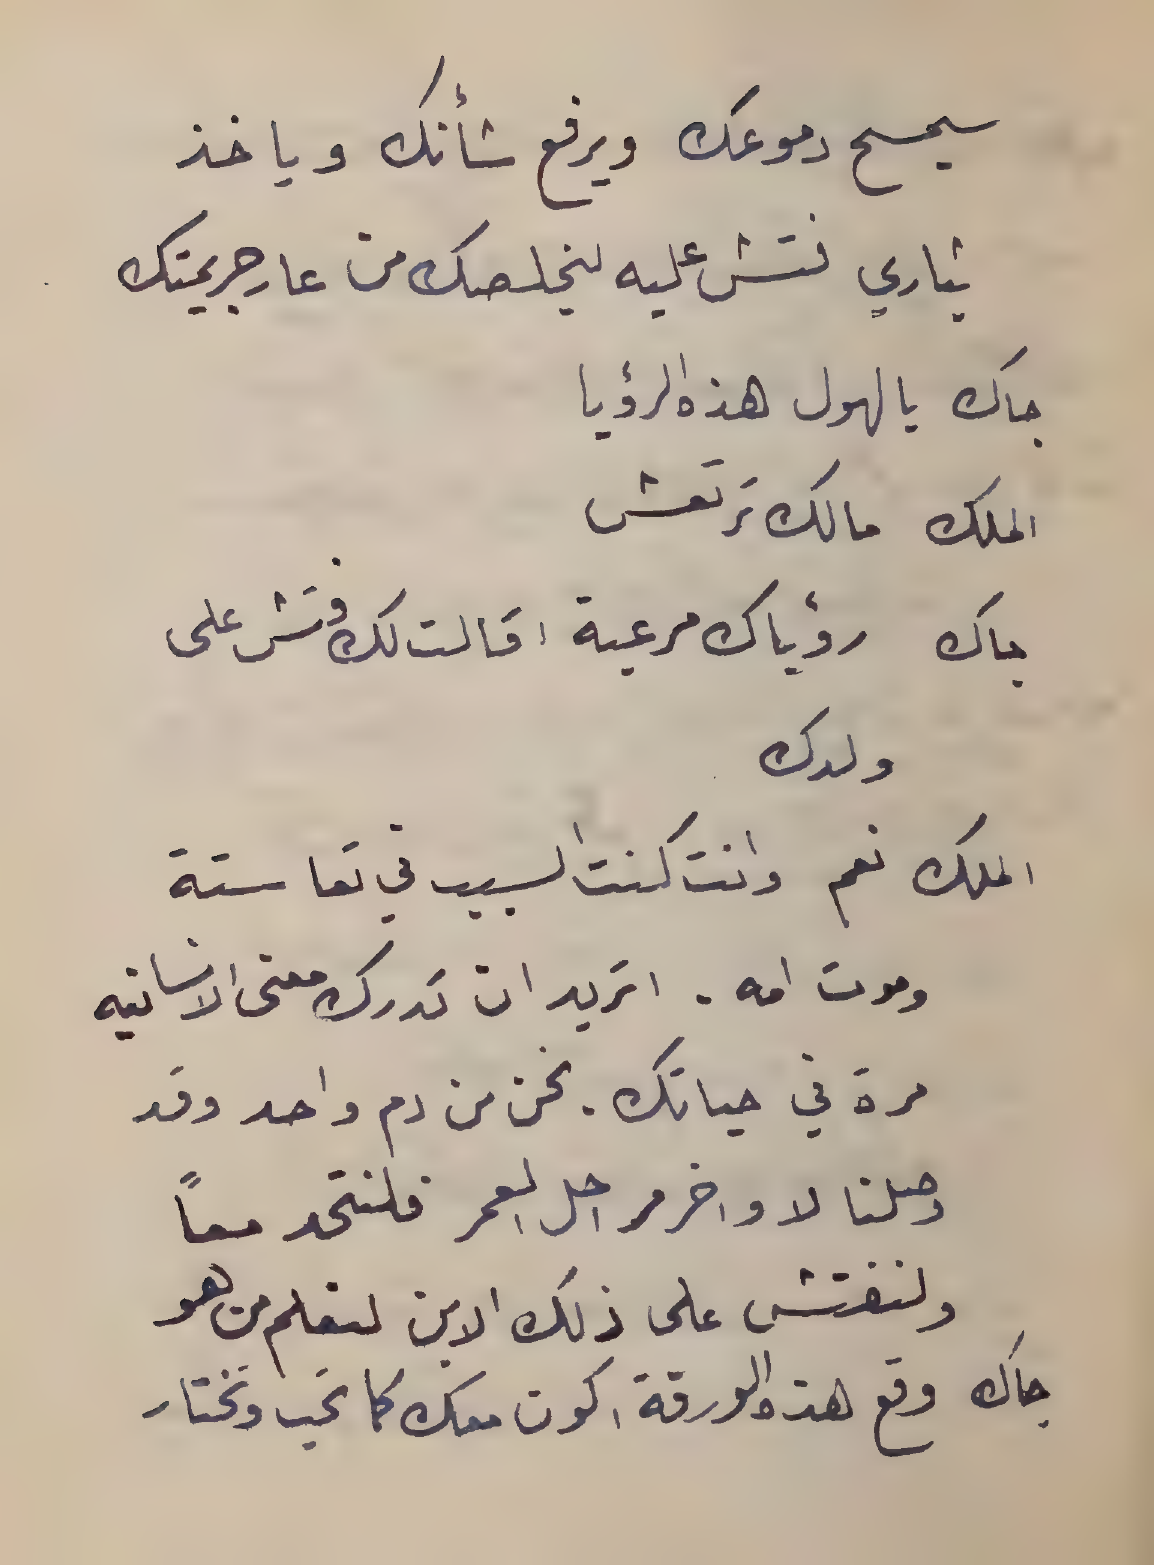 سيمسح دموعك ويرفع شأنك وياخذ
بثاري فتش عليه ليخلصك من عار جريمتك
جاك يالهول هذه الرؤيا
الملك مالك ترتعش
جاك رؤياك مرعبة اقالت لك فتش على
ولدك
الملك نعم وانت كنت السبب في تعاستة
وموت امه . اتريد ان تدرك معنى الانسانيه
مرة في حياتك . نحن من دم واحد وقد
وصلنا لاواخر مراحل العمر فلنتحد معاً
ولنفتش على ذلك الابن لنعلم من هو
جاك وقع هذه الورقة اكون معك كما تحب وتختار